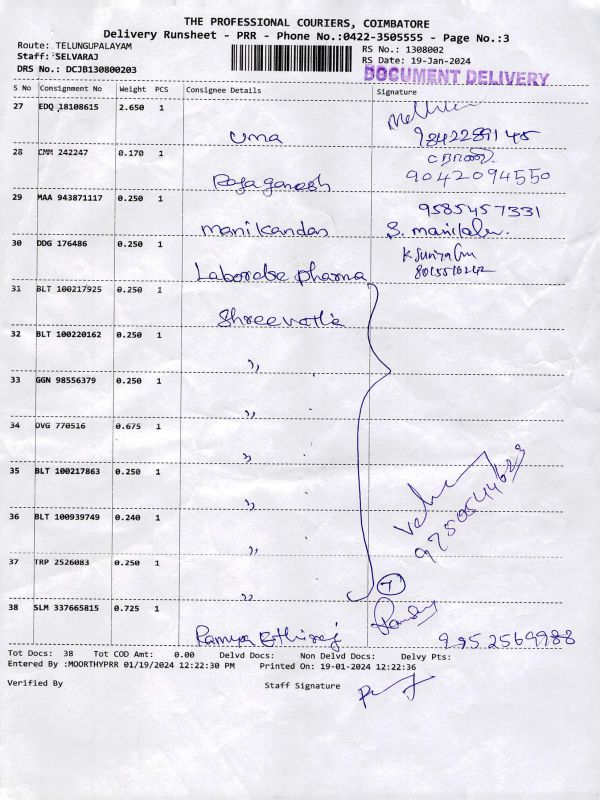 THE PROFESSIONAL COURIERS, COIMBATORE
Delivery Runsheet - PRR - Phone No.:0422-3505555 - Page No.:3
Route: TELUNGUPALAYAM RS No.: 1308002
Staff: SELVARAJ RS Date: 19-Jan-2024
DRS No.: DCJB130800203 DOCUMENT DELIVERY
S No Consignment No Weight PCS Consignee Details Signature
27 EDQ 18108615 2.650 1
uma 9842289145
28 CMM 242247 0.170 1
Raja ganesh 9042094550
29 MAA 943871117 0.250 1 9585457331
manikandan S. manikandan
30 DDG 176486 0.250 1
Laborate pharma
31 BLT 100217925 0.250 1 Shreevatha
32 BLT 100220162 0.250 1
〃
33 GGN 98556379 0.250 1
〃
34 DVG 770516 0.675 1
〃
35 BLT 100217863 0.250 1
〃
36 BLT 100939749 0.240 1
〃
37 TRP 2526083 0.250 1
〃 7
38 SLM 337665815 0.725 1
Ramya Ethiraj 9952569988
Tot Docs: 38 Tot COD Amt: 0.00 Delvd Docs: Non Delvd Docs: Delvy Pts:
Entered By :MOORTHYPRR 01/19/2024 12:22:30 PM Printed On: 19-01-2024 12:22:36
Verified By Staff Signature